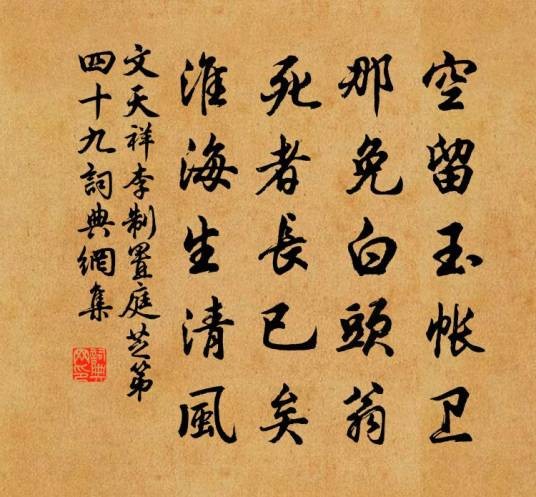 空留玉帐卫
那免白頭翁
死者長已矣
淮海生清風
文天祥李制置庭芝第
四十九詞典網集
詞典網印